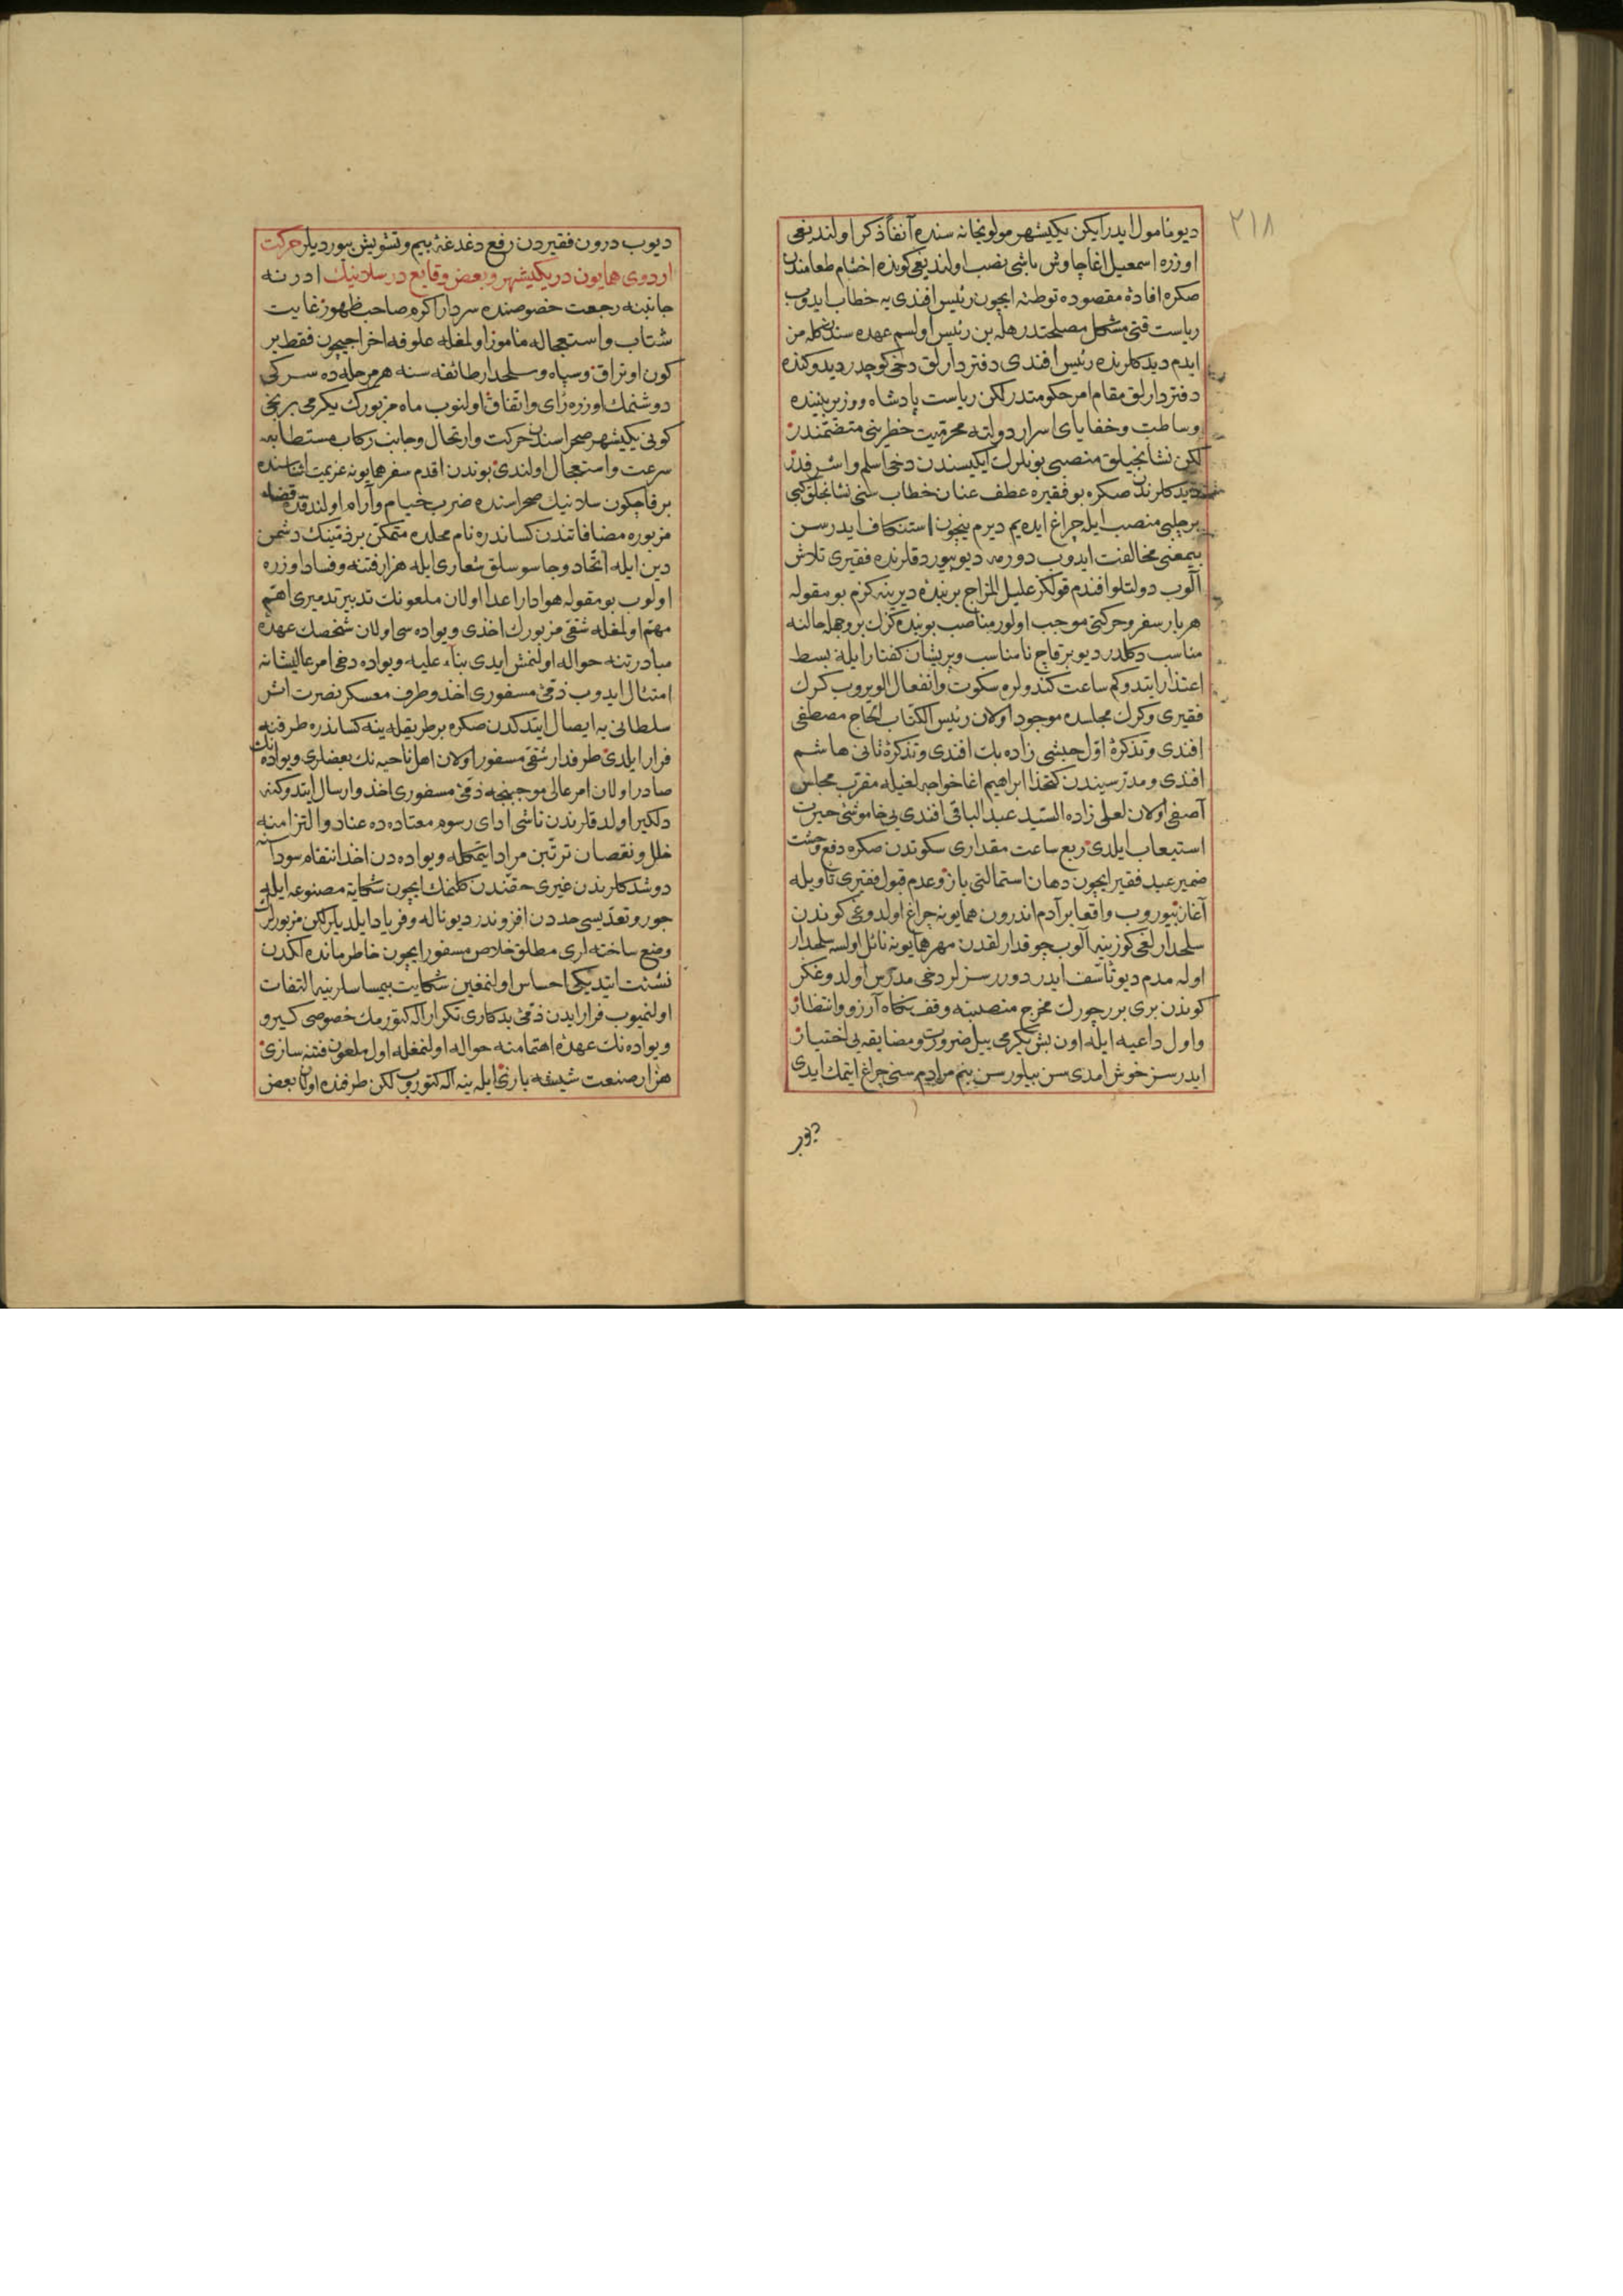 ٢١٨
ديو نامول ايدر ايكن يكيشهر مولويخانه سنده آنفا ذكر اولنديغى
اوزره اسمعيل اغا چاوش باشى نصب اولنديغى كونده اختتام طعامندن
صكره افادهٔ مقصوده توطئه ايچون رئيس افندى يه خطاب ايدوب
رياست قتى مشكل مصلحتدر هله بن رئيس اولسم عهده سندن كله من
ايدم ديدكلرنده رئيس افندى دفتردارلق دخى كوچدر ديدوكنده
دفتردارلق مقام امر حكومتدر لكن رياست پادشاه ووزير بيننده
وساطت وخفاياى اسرار دولته محرميت خطرينى متضمندر
لكن نشانجيلق منصبى بونلرك ايكيسندن دخى اسلم واشرفدر
ديدكلرندن صكره بو فقيره عطف عنان خطاب سنى نشانجلق كبى
بر چلبى منصب ايله چراغ ايده يم ديرم نيچون استنكاف ايدرسن
بيمعنى مخالفت ايدوب دورمه ديو بيوردقلرنده فقيرى تلاش
آلوب دولتلو افندم قولكز عليل المزاج بر بندهٔ ديرينه كزم بو مقوله
هر بار سفر وحركتى موجب اولور مناصب بو بنده كزك بر وجهله حالنه
مناسب دكلدر ديو بر قاچ نامناسب وپريشان كفتار ايله بسط
اعتذار ايتدوكم ساعت كندولره سكوت وانفعال الويروب كرك
فقيرى وكرك مجلسده موجود اولان رئيس الكتاب الحاج مصطفى
افندى وتذكرهٔ اول حبشى زاده بك افندى وتذكرهٔ ثانى هاشم
افندى ومدرسيندن كتخدا ابراهيم اغا خواجه لغيله مقرب مجلس
آصفى اولان لعلى زاده السيد عبد الباقى افندى يى خاموشئ حيرت
استيعاب ايلدى ربع ساعت مقدارى سكوتدن صكره دفع وحشت
ضمير عبد فقير ايچون دهان استمالتى باز وعدم قبول فقيرى تأويله
آغاز بيوروب واقعا بر آدم اندرون همايونه چراغ اولدوغى كوندن
سلحدارلغى كوزينه آلوب چوقدارلقدن مهر همايونه نائل اولسه سلحدار
اوله مدم ديو تأسف ايدر دورر سزلر دخى مدرس اولدوغكز
كوندن برى بررچورك مخرج منصبنه وقف نكاه آرزو وانتظار
واول داعيه ايله اون بش يكرمى ييل ضرورت ومضايقه يى اختيار
ايدرسز خوش امدى سن بيلورسن بنم مرادم سنى چراغ ايتمك ايدى
ديوب
ديوب درون فقيردن رفع دغدغهٔ بيم وتشويش بيورديلر حركت
اردوى همايون در يكيشهر وبعض وقايع در سلانيك ادرنه
جانبنه رجعت خصوصنده سردار اكرم صاحب ظهور غايت
شتاب واستعجاله مأمور اولمغله علوفه اخراجيچون فقط بر
كون اوتراق وسپاه وسلحدار طائفه سنه هر مرحله ده سركى
دوشنمك اوزره راى واتفاق اولنوب ماه مزبورك يكرمى برنجى
كونى يكيشهر صحراسندن حركت وارتحال وجانب ركاب مستطابه
سرعت واستعجال اولندى بوندن اقدم سفر همايونه عزيمت اثناسنده
بر قاچ كون سلانيك صحراسنده ضرب خيام وآرام اولندقده قضاء
مزبوره مضافاتندن كساندره نام محلده متمكن بر ذمينك دشمن
دين ايله اتحاد وجاسوسلق شعارى ايله هزار فتنه وفساد اوزره
اولوب بو مقوله هوادار اعدا اولان ملعونك تدبير تدميرى اهم
مهم اولمغله شقئ مزبورك اخذى ويواده سى اولان شخصك عهدهٔ
مبادرتنه حواله اولنمش ايدى بناء عليه ويواده دخى امر عاليشانه
امتثال ايدوب ذمئ مسفورى اخذ وطرف معسكر نصرت اثر
سلطانى يه ايصال ايتدكدن صكره بر طريقله ينه كساندره طرفنه
فرار ايلدى طرفدار شقئ مسفور اولان اهل ناحيه نك بعضلرى ويواده نك
صادر اولان امر عالى موجبنجه ذمئ مسفورى اخذ وارسال ايتدوكنه
دلكير اولدقلرندن ناشى اداى رسوم معتاده ده عناد والتزامنه
خلل ونقصان ترتبين مراد ايتمكله ويواده دن اخذ انتقام سوداسنه
دوشدكلرندن غيرى حقندن كلنمك ايچون شكايهٔ مصنوعه ايله
جور وتعديسى حددن افزوندر ديو ناله وفرياد ايلديلر لكن مزبورلرك
وضع ساخته لرى مطلق خلاص مسفور ايچون خاطرمانده لكدن
نشئت ايتديكى احساس اولنمغين شكايت بيمساسلرينه التفات
اولنميوب فرار ايدن ذمئ بدكارى تكرار اله كتورمك خصوصى كيرو
ويواده نك عهدهٔ اهتمامنه حواله اولنمغله اول ملعون فتنه سازى
هزار صنعت شيشه بازى ايله ينه اله كتوروب لكن طرفنده اولان بعض